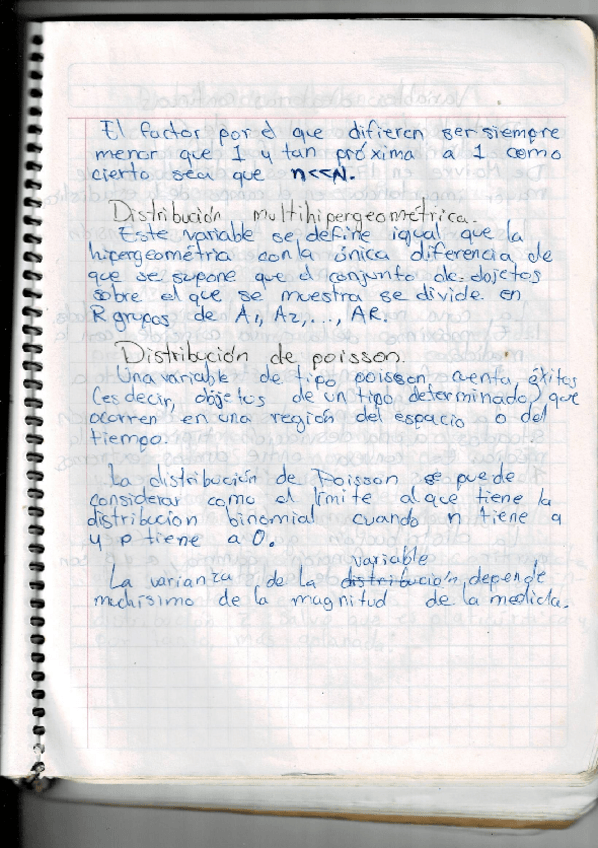 El factor por el que difieren ser siempre
menor que 1 y tan próxima a 1 como
cierto sea que n<<N.
Distribución multihipergeométrica.
Este variable se define igual que la
hipergeométria con la única diferencia de
que se supone que el conjunto de objetos
sobre el que se muestra se divide en
R grupos de A1, A2,..., AR.
Distribución de poisson.
Una variable de tipo poisson cuenta éxitos
(es decir, objetos de un tipo determinado) que
ocurren en una región del espacio o del
tiempo.
La distribución de Poisson se puede
considerar como el límite al que tiene la
distribucion binomial cuando n tiene a
y p tiene a 0.
variable
La varianza de la distribución, depende
muchísimo de la magnitud de la medida.